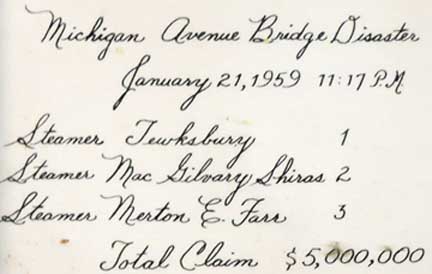 Michigan Avenue Bridge Disaster
January 21, 1959 11:17 P.M.
Steamer Tewksbury 1
Steamer Mac Gilvary Shiras 2
Steamer Merton E. Farr 3
Total Claim $5,000,000